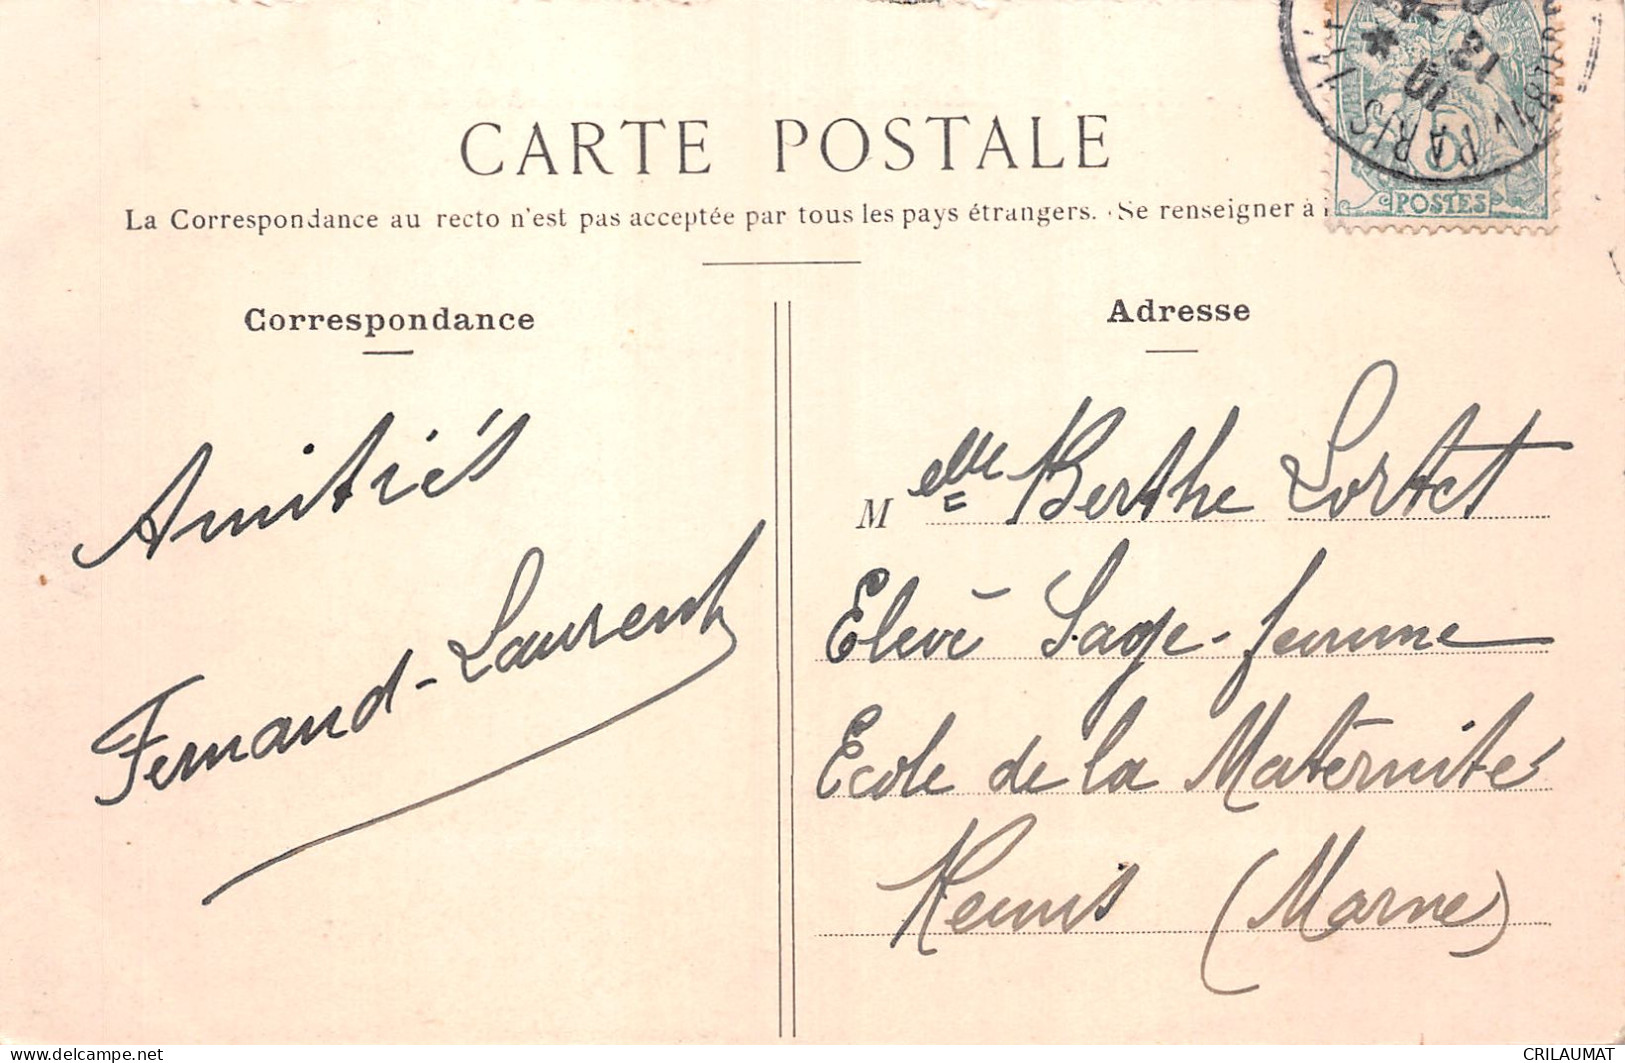 CARTE POSTALE
La Correspondance au recto n'est pas acceptée par tous les pays étrangers. Se renseigner à
5
POSTES
PARIS
13
10
Correspondance
Amitiés
Fernand-Laurent
Adresse
M elle Berthe Lortet
Elève Sage-femme
Ecole de la Maternité
Reims (Marne)
www.delcampe.net
CRILAUMAT